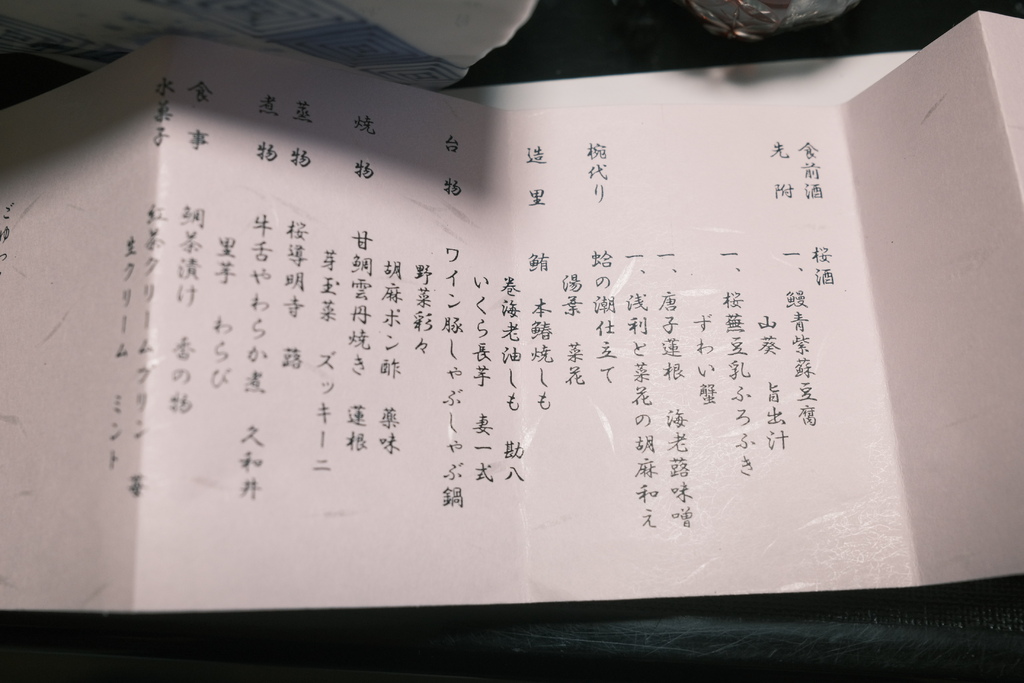 食前酒 桜酒
先附 一、鰻青紫蘇豆腐
山葵 旨出汁
一、桜蕪豆乳ふろふき
ずわい蟹
一、唐子蓮根 海老蕗味噌
一、浅利と菜花の胡麻和え
椀代り 蛤の潮仕立て
湯葉 菜花
造里 鮪 本鰆焼しも
巻海老油しも 勘八
いくら長芋 妻一式
台物 ワイン豚しゃぶしゃぶ鍋
野菜彩々
胡麻ポン酢 薬味
焼物 甘鯛雲丹焼き 蓮根
芽玉菜 ズッキーニ
蒸物 桜導明寺 蕗
煮物 牛舌やわらか煮 久和井
里芋 わらび
食事 鯛茶漬け 香の物
水菓子 紅茶クリームプリン 苺
生クリーム ミント
ごゆっ